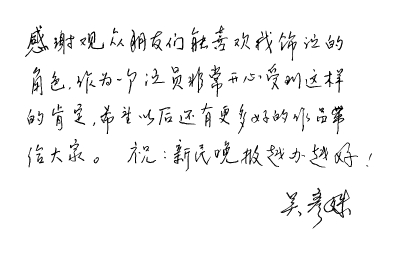 感谢观众朋友们能喜欢我饰演的
角色，作为一个演员非常开心受到这样
的肯定，希望以后还有更多好的作品带
给大家。 祝：新民晚报越办越好！
吴彦姝